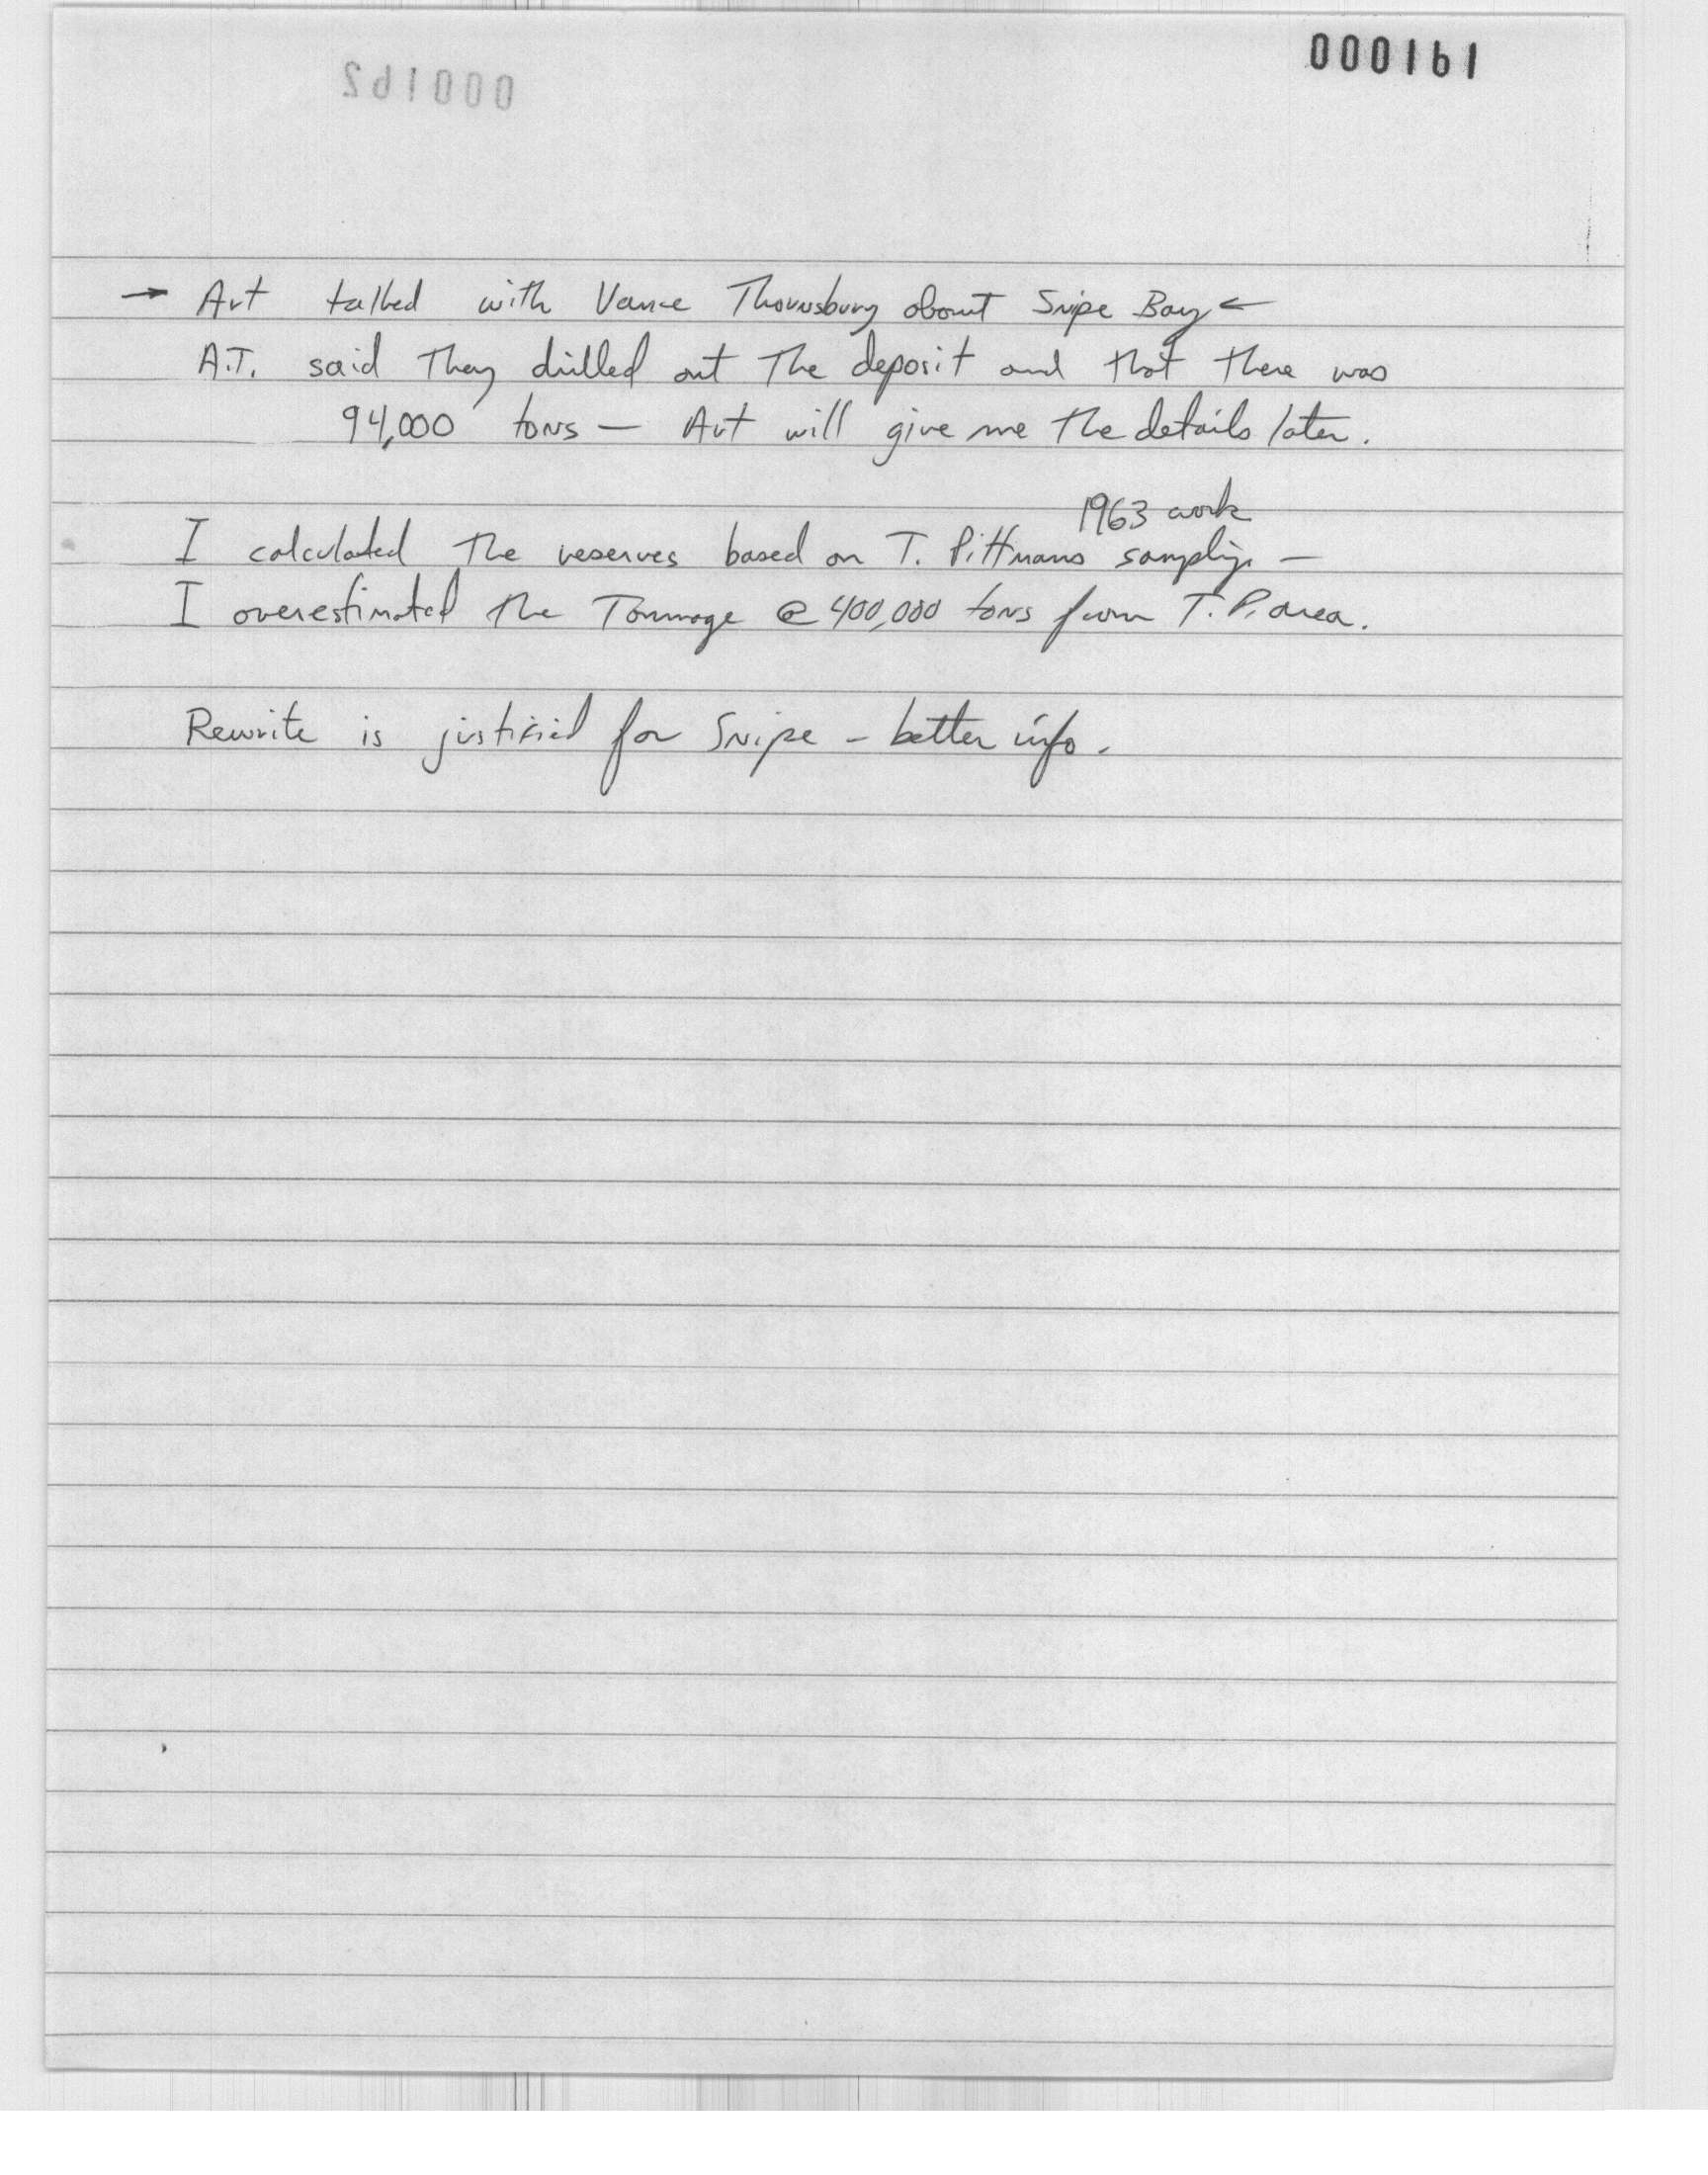 000161
000162
→ Art talked with Vance Thornsbury about Snipe Bay ←
A.T. said they drilled out the deposit and that there was
94,000 tons — Art will give me the details later.
1963 work
I calculated the reserves based on T. Pittmans sampling —
I overestimated the Tonnage @ 400,000 tons from T. P. area.
Rewrite is justified for Snipe - better info.